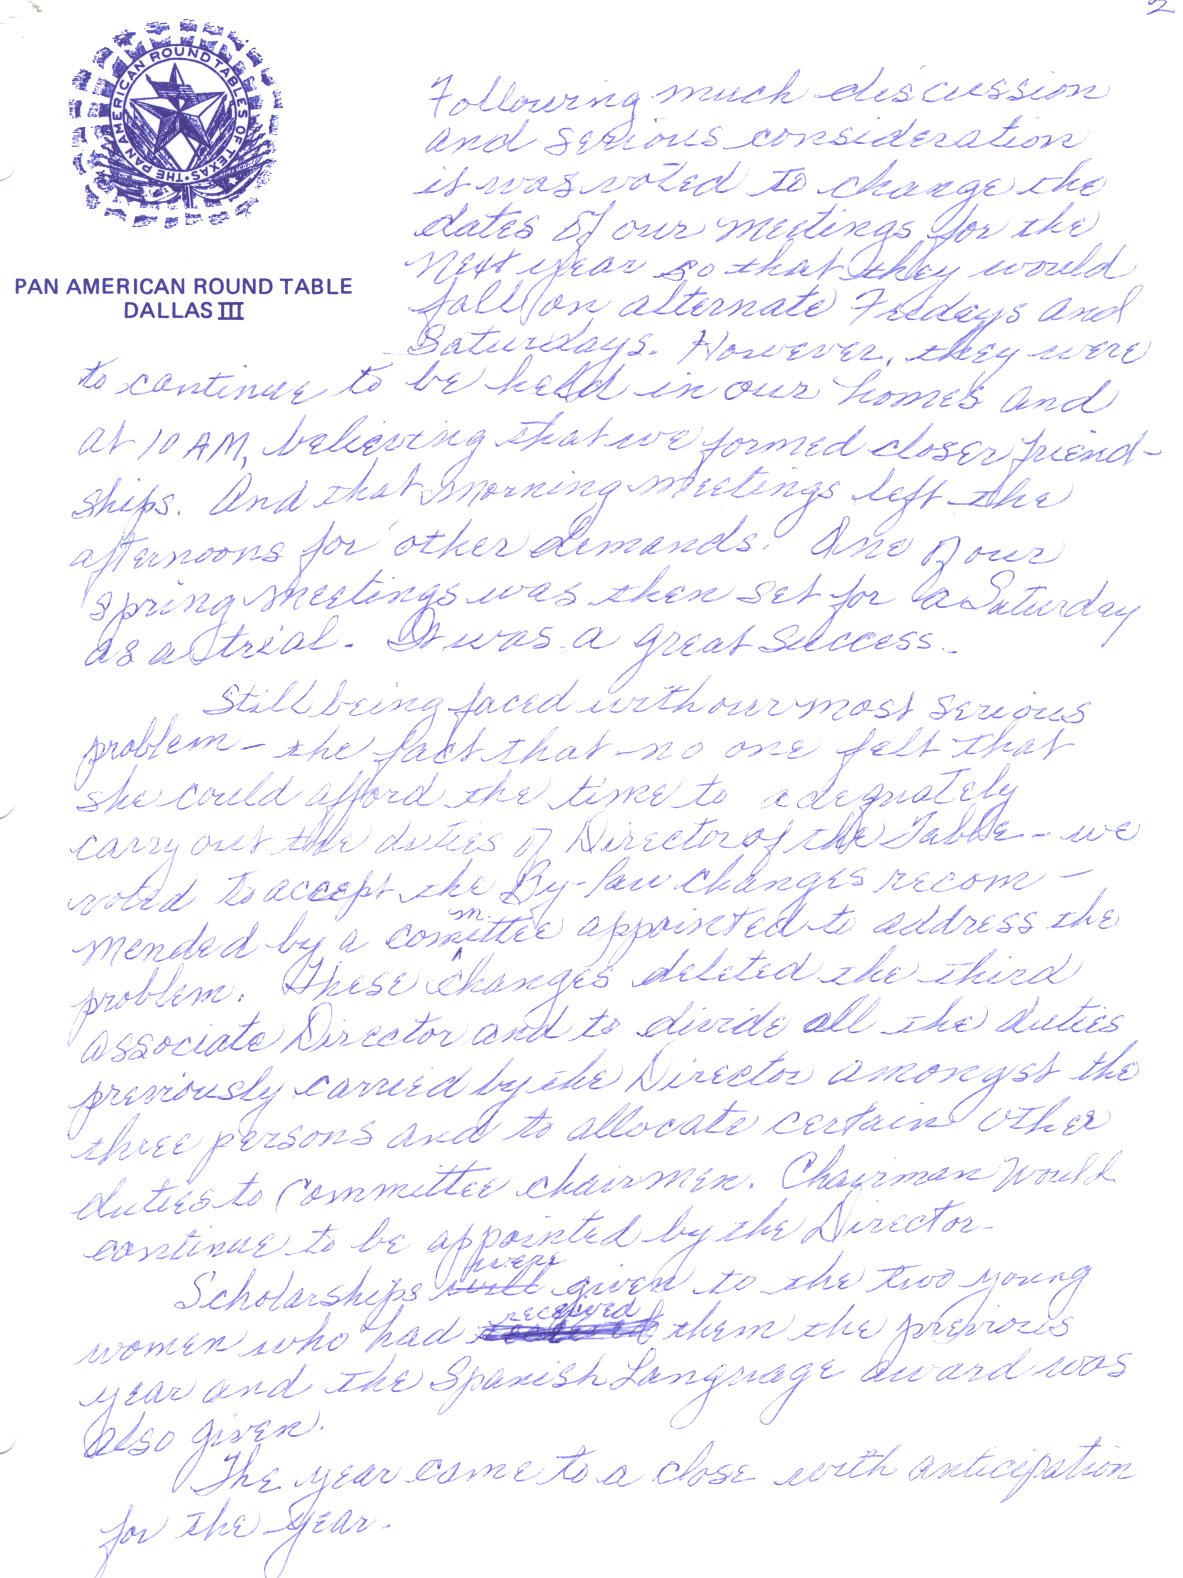 2
THE PAN AMERICAN ROUND TABLES OF TEXAS
PAN AMERICAN ROUND TABLE
DALLAS III
Following much discussion
and serious consideration
it was voted to change the
dates of our meetings for the
next year so that they would
fall on alternate Fridays and
Saturdays. However, they were
to continue to be held in our homes and
at 10 AM, believing that we formed closer friend-
ships. And that morning meetings left the
afternoons for other demands. One of our
spring meetings was then set for a Saturday
as a trial. It was a great success.
Still being faced with our most serious
problem - the fact that no one felt that
she could afford the time to adequately
carry out the duties of Director of the Table - we
voted to accept the By-Law changes recom-
mended by a committee appointed to address the
problem. These changes deleted the third
associate Director and to divide all the duties
previously carried by the Director amongst the
three persons and to allocate certain other
duties to Committee chairmen. Chairman would
continue to be appointed by the Director.
Scholarships will were given to the two young
women who had received them the previous
year and the Spanish Language award was
also given.
The year came to a close with anticipation
for the year.